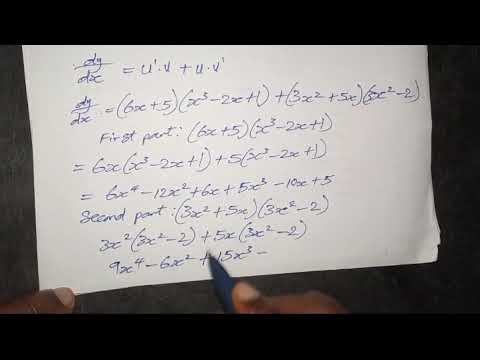 dy/dx = u'.v + u.v'
dy/dx = (6x+5)(x³-2x+1) + (3x²+5x)(3x²-2)
First part: (6x+5)(x³-2x+1)
= 6x(x³-2x+1) + 5(x³-2x+1)
= 6x⁴-12x²+6x+5x³-10x+5
Second part: (3x²+5x)(3x²-2)
3x²(3x²-2)+5x(3x²-2)
9x⁴-6x²+15x³-